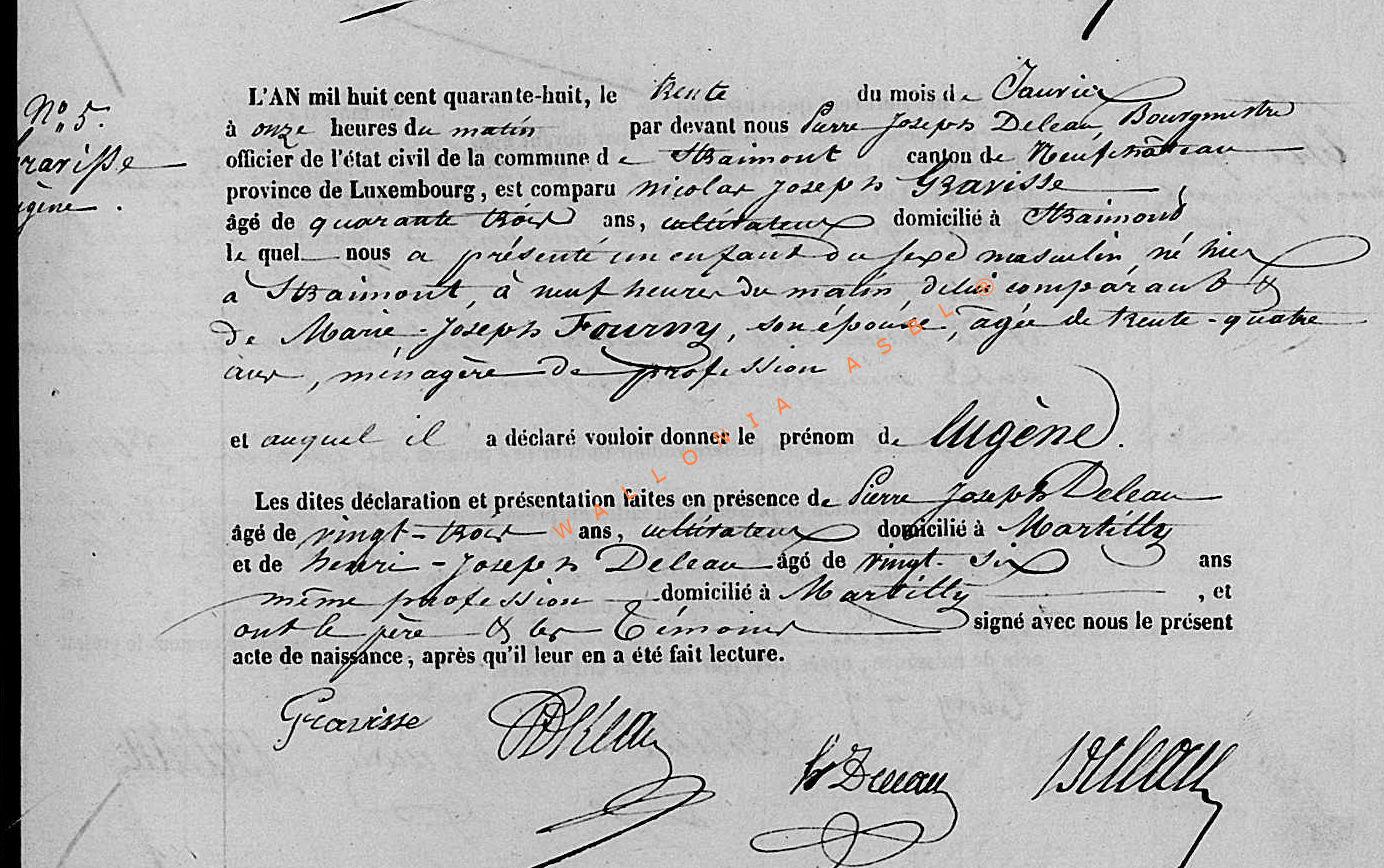 N° 5.
Gravisse
Eugène.
L'AN mil huit cent quarante-huit, le trente du mois de Janvier
à onze heures du matin par devant nous Pierre Joseph Deleau, Bourgmestre
officier de l'état civil de la commune de Straimont canton de Neufchâteau
province de Luxembourg, est comparu nicolas Joseph Gravisse,
âgé de quarante trois ans, cultivateur domicilié à Straimont
le quel nous a présenté un enfant du sexe masculin, né hier
à Straimont, à neuf heures du matin, de lui comparant &
de Marie-Joseph Fourny, son épouse, âgée de trente-quatre
ans, ménagère de profession
et auquel il a déclaré vouloir donner le prénom de Eugène.
Les dites déclaration et présentation faites en présence de Pierre Joseph Deleau
âgé de vingt-trois ans, cultivateur domicilié à Martilly
et de henri-Joseph Deleau âgé de vingt-six ans
même profession domicilié à Martilly, et
ont le père & les témoins signé avec nous le présent
acte de naissance, après qu'il leur en a été fait lecture.
Gravisse Deleau
h Deleau Deleau
WALLONIA ASBL ®